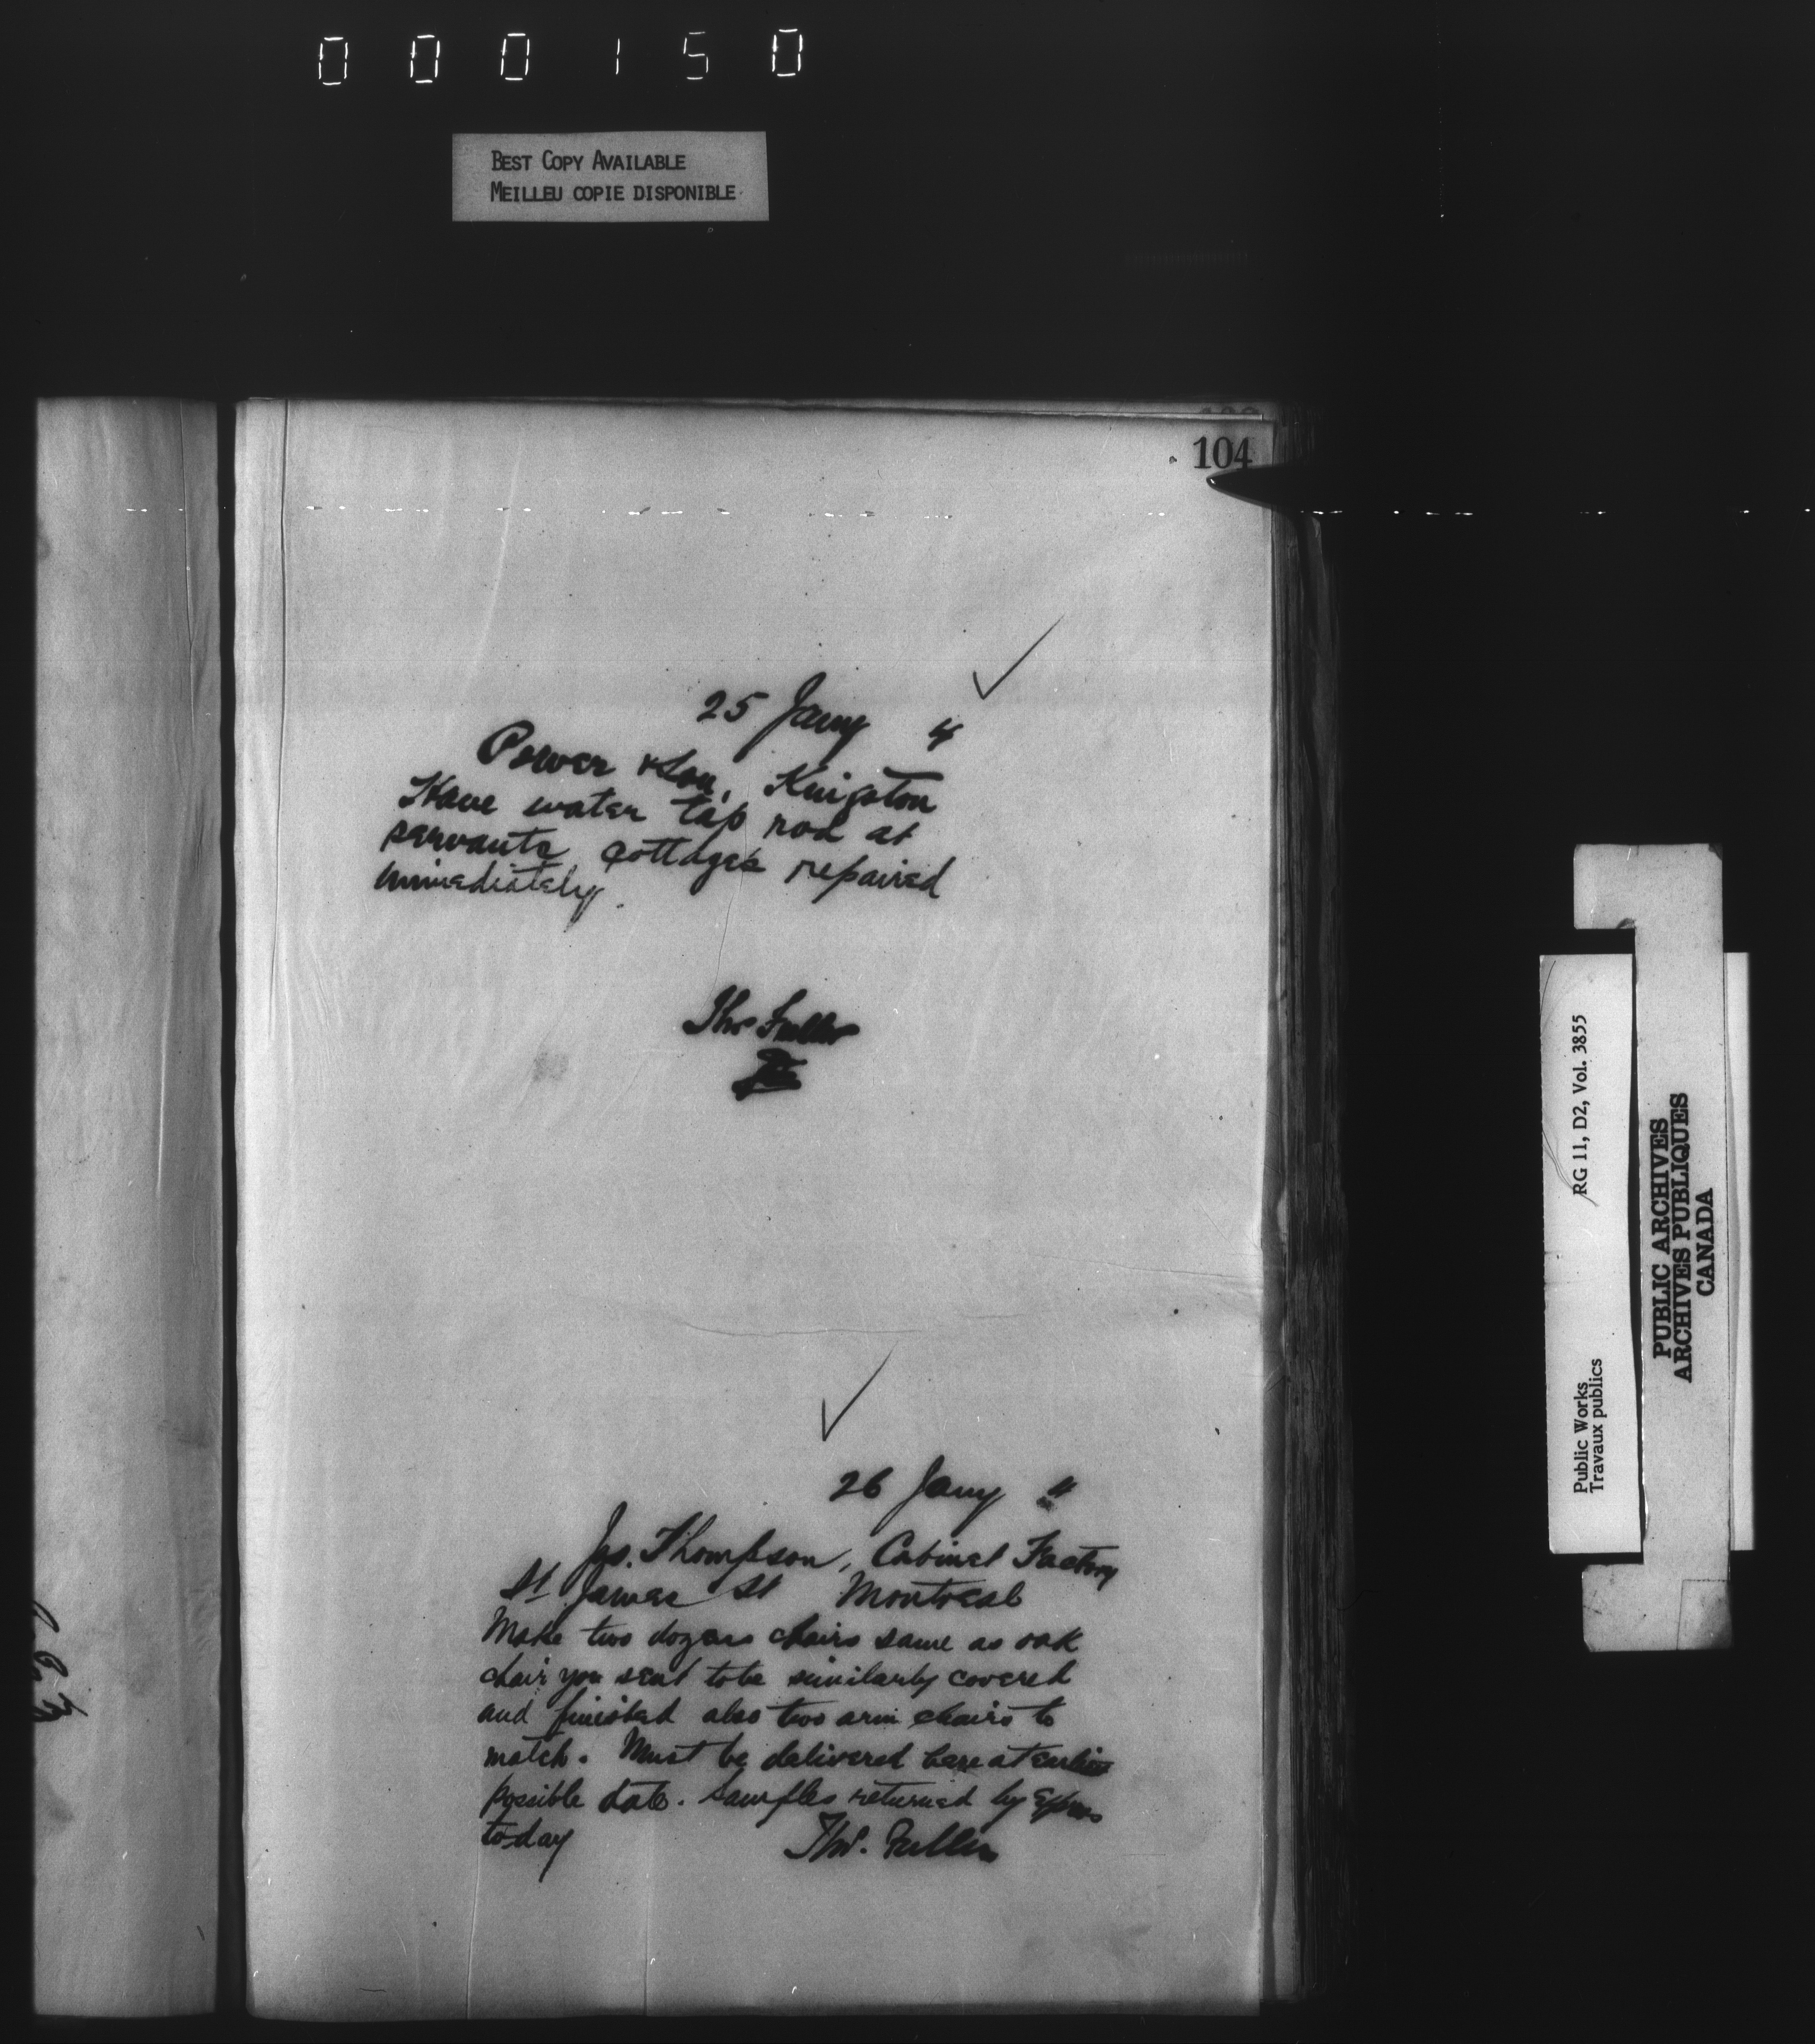 000150
BEST COPY AVAILABLE
MEILLEU COPIE DISPONIBLE
104
25 Jany 4
Power & Son, Kingston
Have water tap rod at
servants cottages repaired
immediately.
Thos Fuller
26 Jany "
Jas. Thompson, Cabinet Factory
St James St Montreal
Make two dozens chairs same as oak
chair you sent to be similarly covered
and finished also two arm chairs to
match. Must be delivered here at earliest
possible date. Samples returned by Express
today
Thos. Fuller
RG 11, D2, Vol. 3855
Public Works
Travaux publics
PUBLIC ARCHIVES
ARCHIVES PUBLIQUES
CANADA